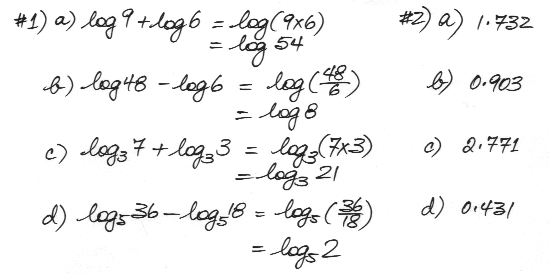 #1) a) log 9 + log 6 = log(9×6)
= log 54
b) log 48 − log 6 = log(48/6)
= log 8
c) log₃ 7 + log₃ 3 = log₃(7×3)
= log₃ 21
d) log₅ 36 − log₅ 18 = log₅(36/18)
= log₅ 2
#2) a) 1.732
b) 0.903
c) 2.771
d) 0.431